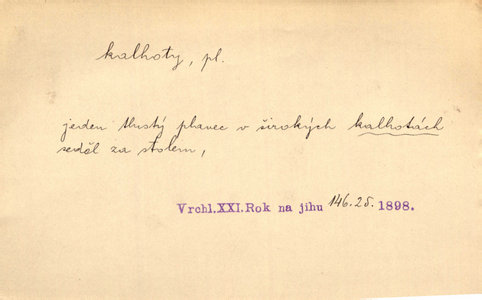 kalhoty, pl.
jeden tlustý plavec v širokých kalhotách
seděl za stolem,
Vrchl.XXI.Rok na jihu 146.25. 1898.